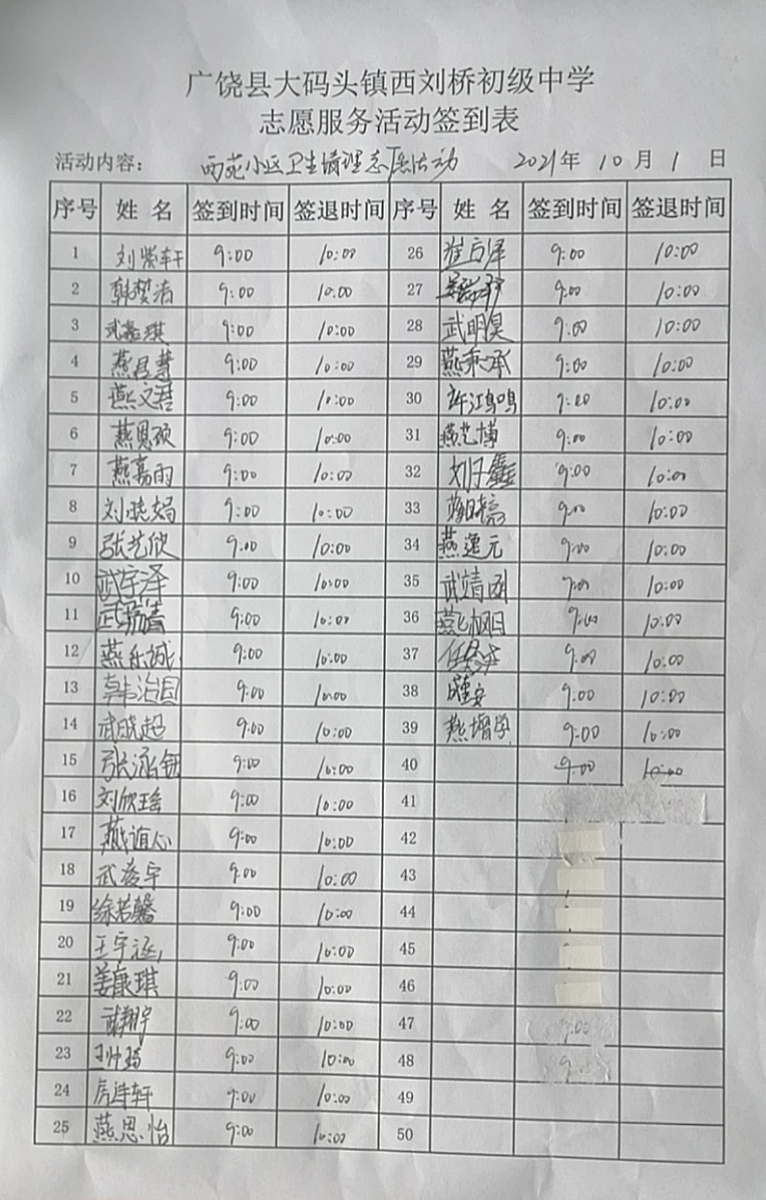 广饶县大码头镇西刘桥初级中学
志愿服务活动签到表
活动内容: 西苑小区卫生清理志愿活动 2021年 10月 1日
序号 姓名 签到时间 签退时间 序号 姓名 签到时间 签退时间
1 刘紫轩 9:00 10:00 26 9:00 10:00
2 韩梦洁 9:00 10:00 27 9:00 10:00
3 武嘉琪 9:00 10:00 28 武明昊 9:00 10:00
4 燕昌慧 9:00 10:00 29 燕秉承 9:00 10:00
5 燕文君 9:00 10:00 30 许江鸣 9:00 10:00
6 燕恩硕 9:00 10:00 31 燕艺博 9:00 10:00
7 燕嘉雨 9:00 10:00 32 刘子鑫 9:00 10:00
8 刘晓嫣 9:00 10:00 33 9:00 10:00
9 张艺欣 9:00 10:00 34 燕逢元 9:00 10:00
10 武宇泽 9:00 10:00 35 武靖函 9:00 10:00
11 9:00 10:00 36 9:00 10:00
12 燕乐诚 9:00 10:00 37 9:00 10:00
13 韩治国 9:00 10:00 38 9:00 10:00
14 武晓超 9:00 10:00 39 燕增学 9:00 10:00
15 张涵钰 9:00 10:00 40 9:00 10:00
16 刘欣瑶 9:00 10:00 41
17 燕谊心 9:00 10:00 42
18 武凌宇 9:00 10:00 43
19 徐若馨 9:00 10:00 44
20 王宇涵 9:00 10:00 45
21 姜康琪 9:00 10:00 46
22 武翔宇 9:00 10:00 47 9:00
23 9:00 10:00 48
24 9:00 10:00 49
25 燕思怡 9:00 10:00 50